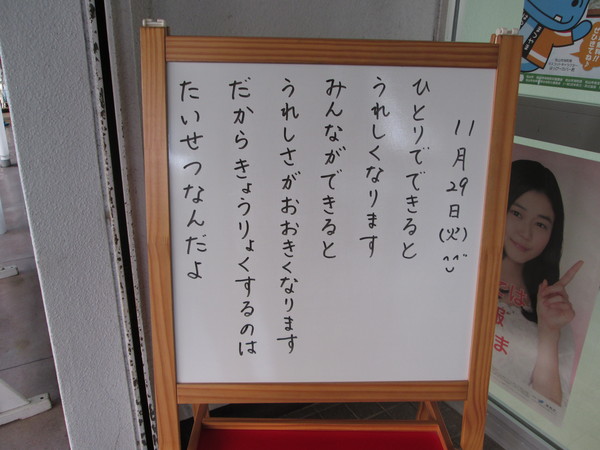 11月29日(火)^^
ひとりでできると
うれしくなります
みんなができると
うれしさがおおきくなります
だからきょうりょくするのは
たいせつなんだよ